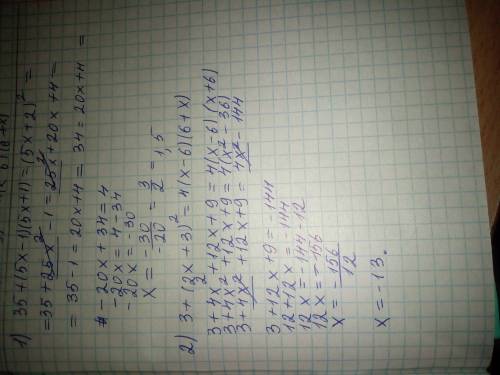 1) 35+(5x-1)(5x+1)=(5x+2)² =
=35+25x²-1=25x²+20x+4=
= 35-1=20x+4= 34=20x+4 =
-20x+34=4
-20x=4-34
-20x=-30
x= -30/-20 = 3/2 = 1,5
2) 3+(2x+3)²=4(x-6)(6+x)
3+4x²+12x+9=4(x-6)(x+6)
3+4x²+12x+9=4(x²-36)
3+4x²+12x+9=4x²-144
3+12x+9=-144
12+12x=-144
12x=-144-12
12x=-156
x=-156/12
x=-13.